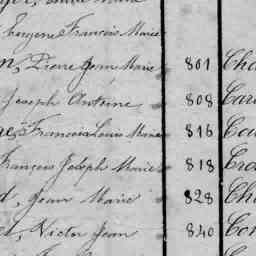 Eugene Francois Marie
n, Pierre Jean Marie 801 Cha
Joseph Antoine 808 Car
Francois Louis Marie 816 Co
François Joseph Marie 818 Cro
d, Jean Marie 828 Ch
Victor Jean 840 Con